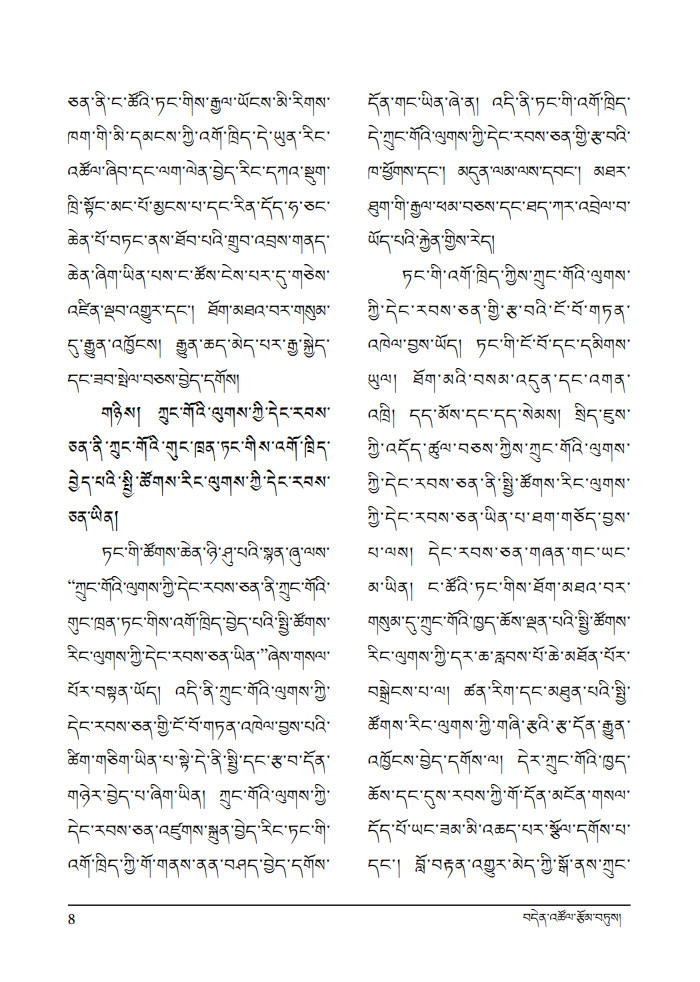 ཅན་ནི་ང་ཚོའི་ཏང་གིས་རྒྱལ་ཡོངས་མི་རིགས་
ཁག་གི་མི་དམངས་ཀྱི་འགོ་ཁྲིད་དེ་ཡུན་རིང་
འཚོལ་ཞིབ་དང་ལག་ལེན་བྱེད་རིང་དཀའ་སྡུག་
ཁྲི་སྟོང་མང་པོ་མྱངས་པ་དང་རིན་དོད་ཧ་ཅང་
ཆེན་པོ་བཏང་ནས་ཐོབ་པའི་གྲུབ་འབྲས་གནད་
ཆེན་ཞིག་ཡིན་པས་ང་ཚོས་ངེས་པར་དུ་གཅེས་
འཛིན་ལྡབ་འགྱུར་དང་། ཐོག་མཐའ་བར་གསུམ་
དུ་རྒྱུན་འཁྱོངས། རྒྱུན་ཆད་མེད་པར་རྒྱ་སྐྱེད་
དང་ཟབ་སྤེལ་བཅས་བྱེད་དགོས།
གཉིས། ཀྲུང་གོའི་ལུགས་ཀྱི་དེང་རབས་
ཅན་ནི་ཀྲུང་གོའི་གུང་ཁྲན་ཏང་གིས་འགོ་ཁྲིད་
བྱེད་པའི་སྤྱི་ཚོགས་རིང་ལུགས་ཀྱི་དེང་རབས་
ཅན་ཡིན།
ཏང་གི་ཚོགས་ཆེན་ཉི་ཤུ་པའི་སྙན་ཞུ་ལས་
“ཀྲུང་གོའི་ལུགས་ཀྱི་དེང་རབས་ཅན་ནི་ཀྲུང་གོའི་
གུང་ཁྲན་ཏང་གིས་འགོ་ཁྲིད་བྱེད་པའི་སྤྱི་ཚོགས་
རིང་ལུགས་ཀྱི་དེང་རབས་ཅན་ཡིན་”ཞེས་གསལ་
པོར་བསྟན་ཡོད། འདི་ནི་ཀྲུང་གོའི་ལུགས་ཀྱི་
དེང་རབས་ཅན་གྱི་ངོ་བོ་གཏན་འཁེལ་བྱས་པའི་
ཚིག་གཅིག་ཡིན་པ་སྟེ་དེ་ནི་སྤྱི་དང་རྩ་བ་དོན་
གཉེར་བྱེད་པ་ཞིག་ཡིན། ཀྲུང་གོའི་ལུགས་ཀྱི་
དེང་རབས་ཅན་འཛུགས་སྐྲུན་བྱེད་རིང་ཏང་གི་
འགོ་ཁྲིད་ཀྱི་གོ་གནས་ནན་བཤད་བྱེད་དགོས་
དོན་གང་ཡིན་ཞེ་ན། འདི་ནི་ཏང་གི་འགོ་ཁྲིད་
དེ་ཀྲུང་གོའི་ལུགས་ཀྱི་དེང་རབས་ཅན་གྱི་རྩ་བའི་
ཁ་ཕྱོགས་དང་། མདུན་ལམ་ལས་དབང་། མཐར་
ཐུག་གི་རྒྱལ་ཕམ་བཅས་དང་ཐད་ཀར་འབྲེལ་བ་
ཡོད་པའི་རྐྱེན་གྱིས་རེད།
ཏང་གི་འགོ་ཁྲིད་ཀྱིས་ཀྲུང་གོའི་ལུགས་
ཀྱི་དེང་རབས་ཅན་གྱི་རྩ་བའི་ངོ་བོ་གཏན་
འཁེལ་བྱས་ཡོད། ཏང་གི་ངོ་བོ་དང་དམིགས་
ཡུལ། ཐོག་མའི་བསམ་འདུན་དང་འགན་
འཁྲི། དད་མོས་དང་དད་སེམས། སྲིད་ཇུས་
ཀྱི་འདོད་ཚུལ་བཅས་ཀྱིས་ཀྲུང་གོའི་ལུགས་
ཀྱི་དེང་རབས་ཅན་ནི་སྤྱི་ཚོགས་རིང་ལུགས་
ཀྱི་དེང་རབས་ཅན་ཡིན་པ་ཐག་གཅོད་བྱས་
པ་ལས། དེང་རབས་ཅན་གཞན་གང་ཡང་
མ་ཡིན། ང་ཚོའི་ཏང་གིས་ཐོག་མཐའ་བར་
གསུམ་དུ་ཀྲུང་གོའི་ཁྱད་ཆོས་ལྡན་པའི་སྤྱི་ཚོགས་
རིང་ལུགས་ཀྱི་དར་ཆ་རླབས་པོ་ཆེ་མཐོན་པོར་
བསྒྲེངས་པ་ལ། ཚན་རིག་དང་མཐུན་པའི་སྤྱི་
ཚོགས་རིང་ལུགས་ཀྱི་གཞི་རྩའི་རྩ་དོན་རྒྱུན་
འཁྱོངས་བྱེད་དགོས་ལ། དེར་ཀྲུང་གོའི་ཁྱད་
ཆོས་དང་དུས་རབས་ཀྱི་གོ་དོན་མངོན་གསལ་
དོད་པོ་ཡང་ཟམ་མི་འཆད་པར་སྩོལ་དགོས་པ་
དང་། བློ་བརྟན་འགྱུར་མེད་ཀྱི་སྒོ་ནས་ཀྲུང་
8
བདེན་འཚོལ་རྩོམ་བཏུས།